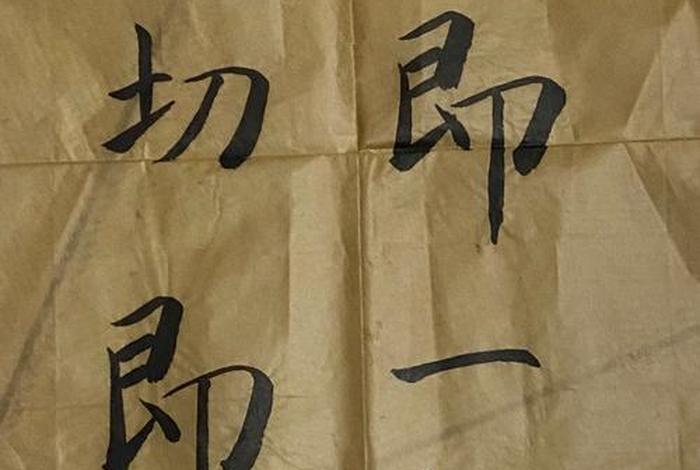 即一
切即